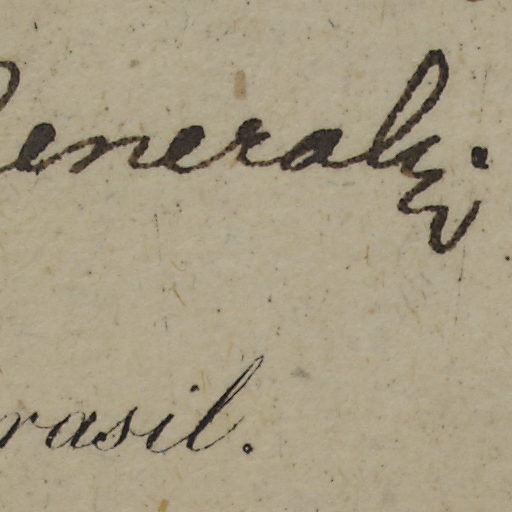 eneral.
rasil.